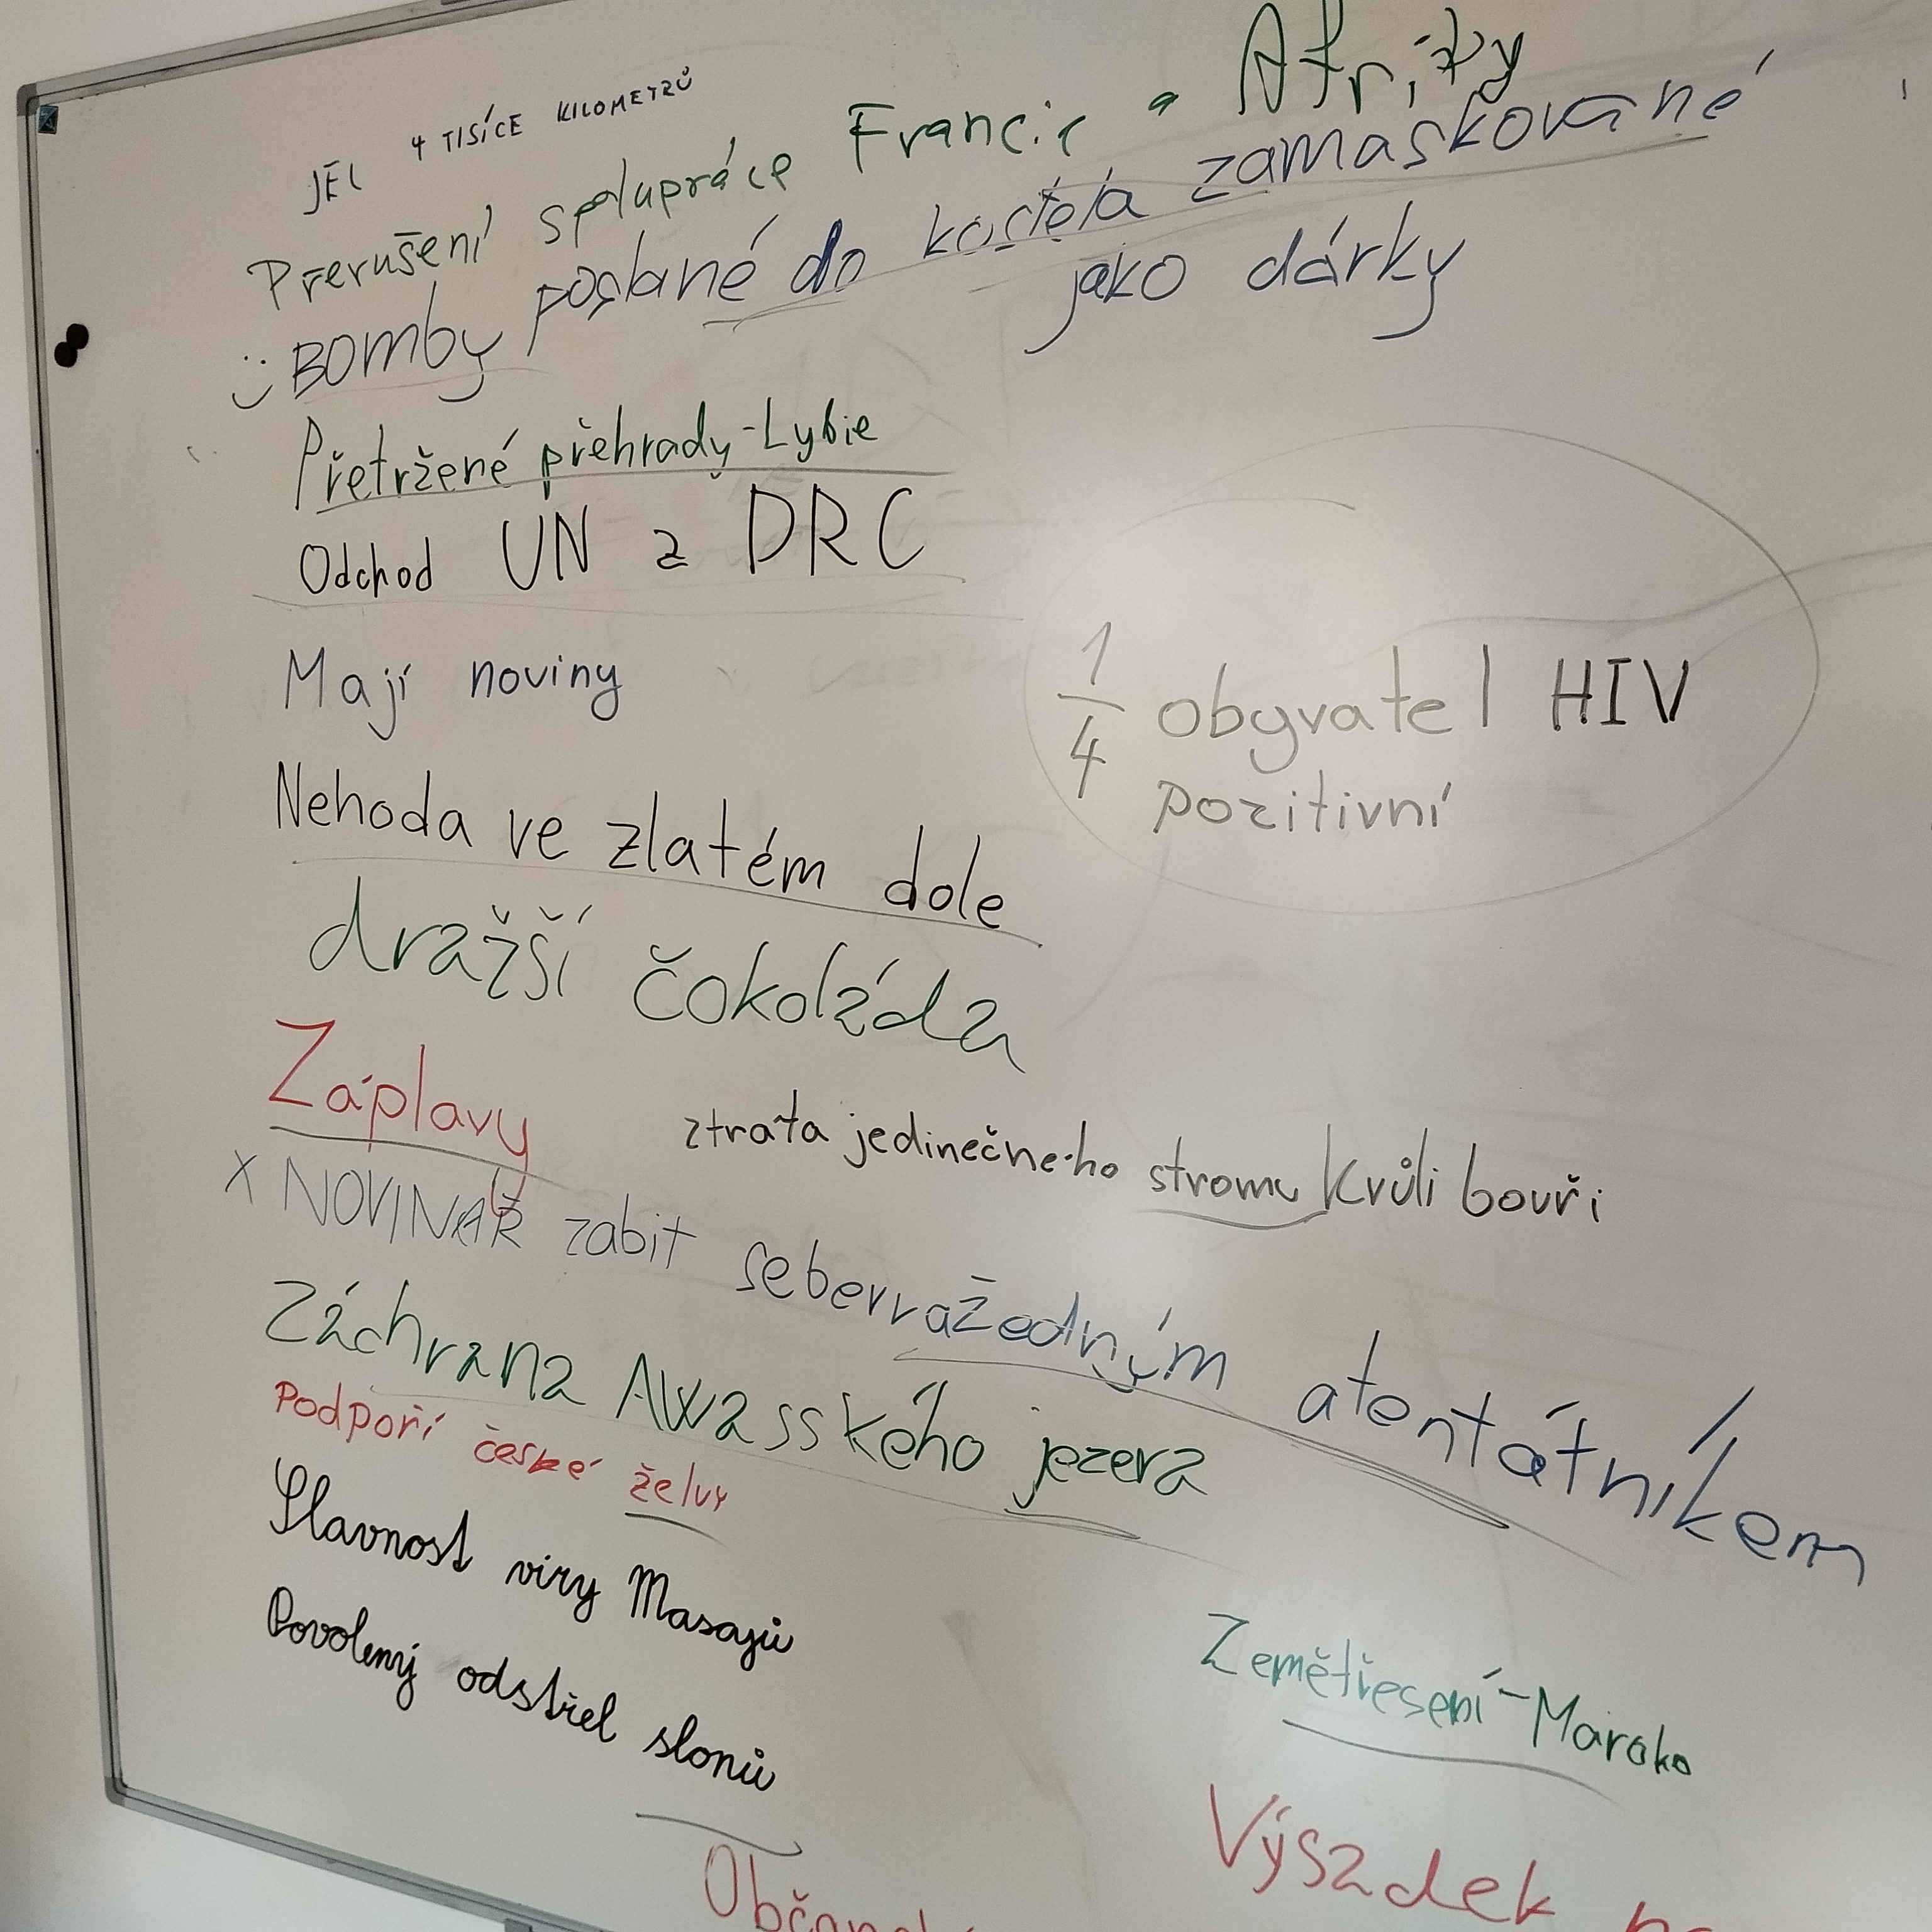 JEL 4 TISÍCE KILOMETRŮ
Přerušení spolupráce Francie a Afriky
Bomby poslané do kostela zamaskované
jako dárky
Přetržené přehrady - Lybie
Odchod UN z DRC
Mají noviny
1/4 obyvatel HIV
pozitivní
Nehoda ve zlatém dole
dražší čokoláda
Záplavy
ztráta jedinečného stromu kvůli bouři
X NOVINÁŘ zabit sebevražedným atentátníkem
Záchrana Awasského jezera
Podpoří české želvy
Slavnost víry Masajů
Povolený odstřel slonů
Zemětřesení - Maroko
Výsadek